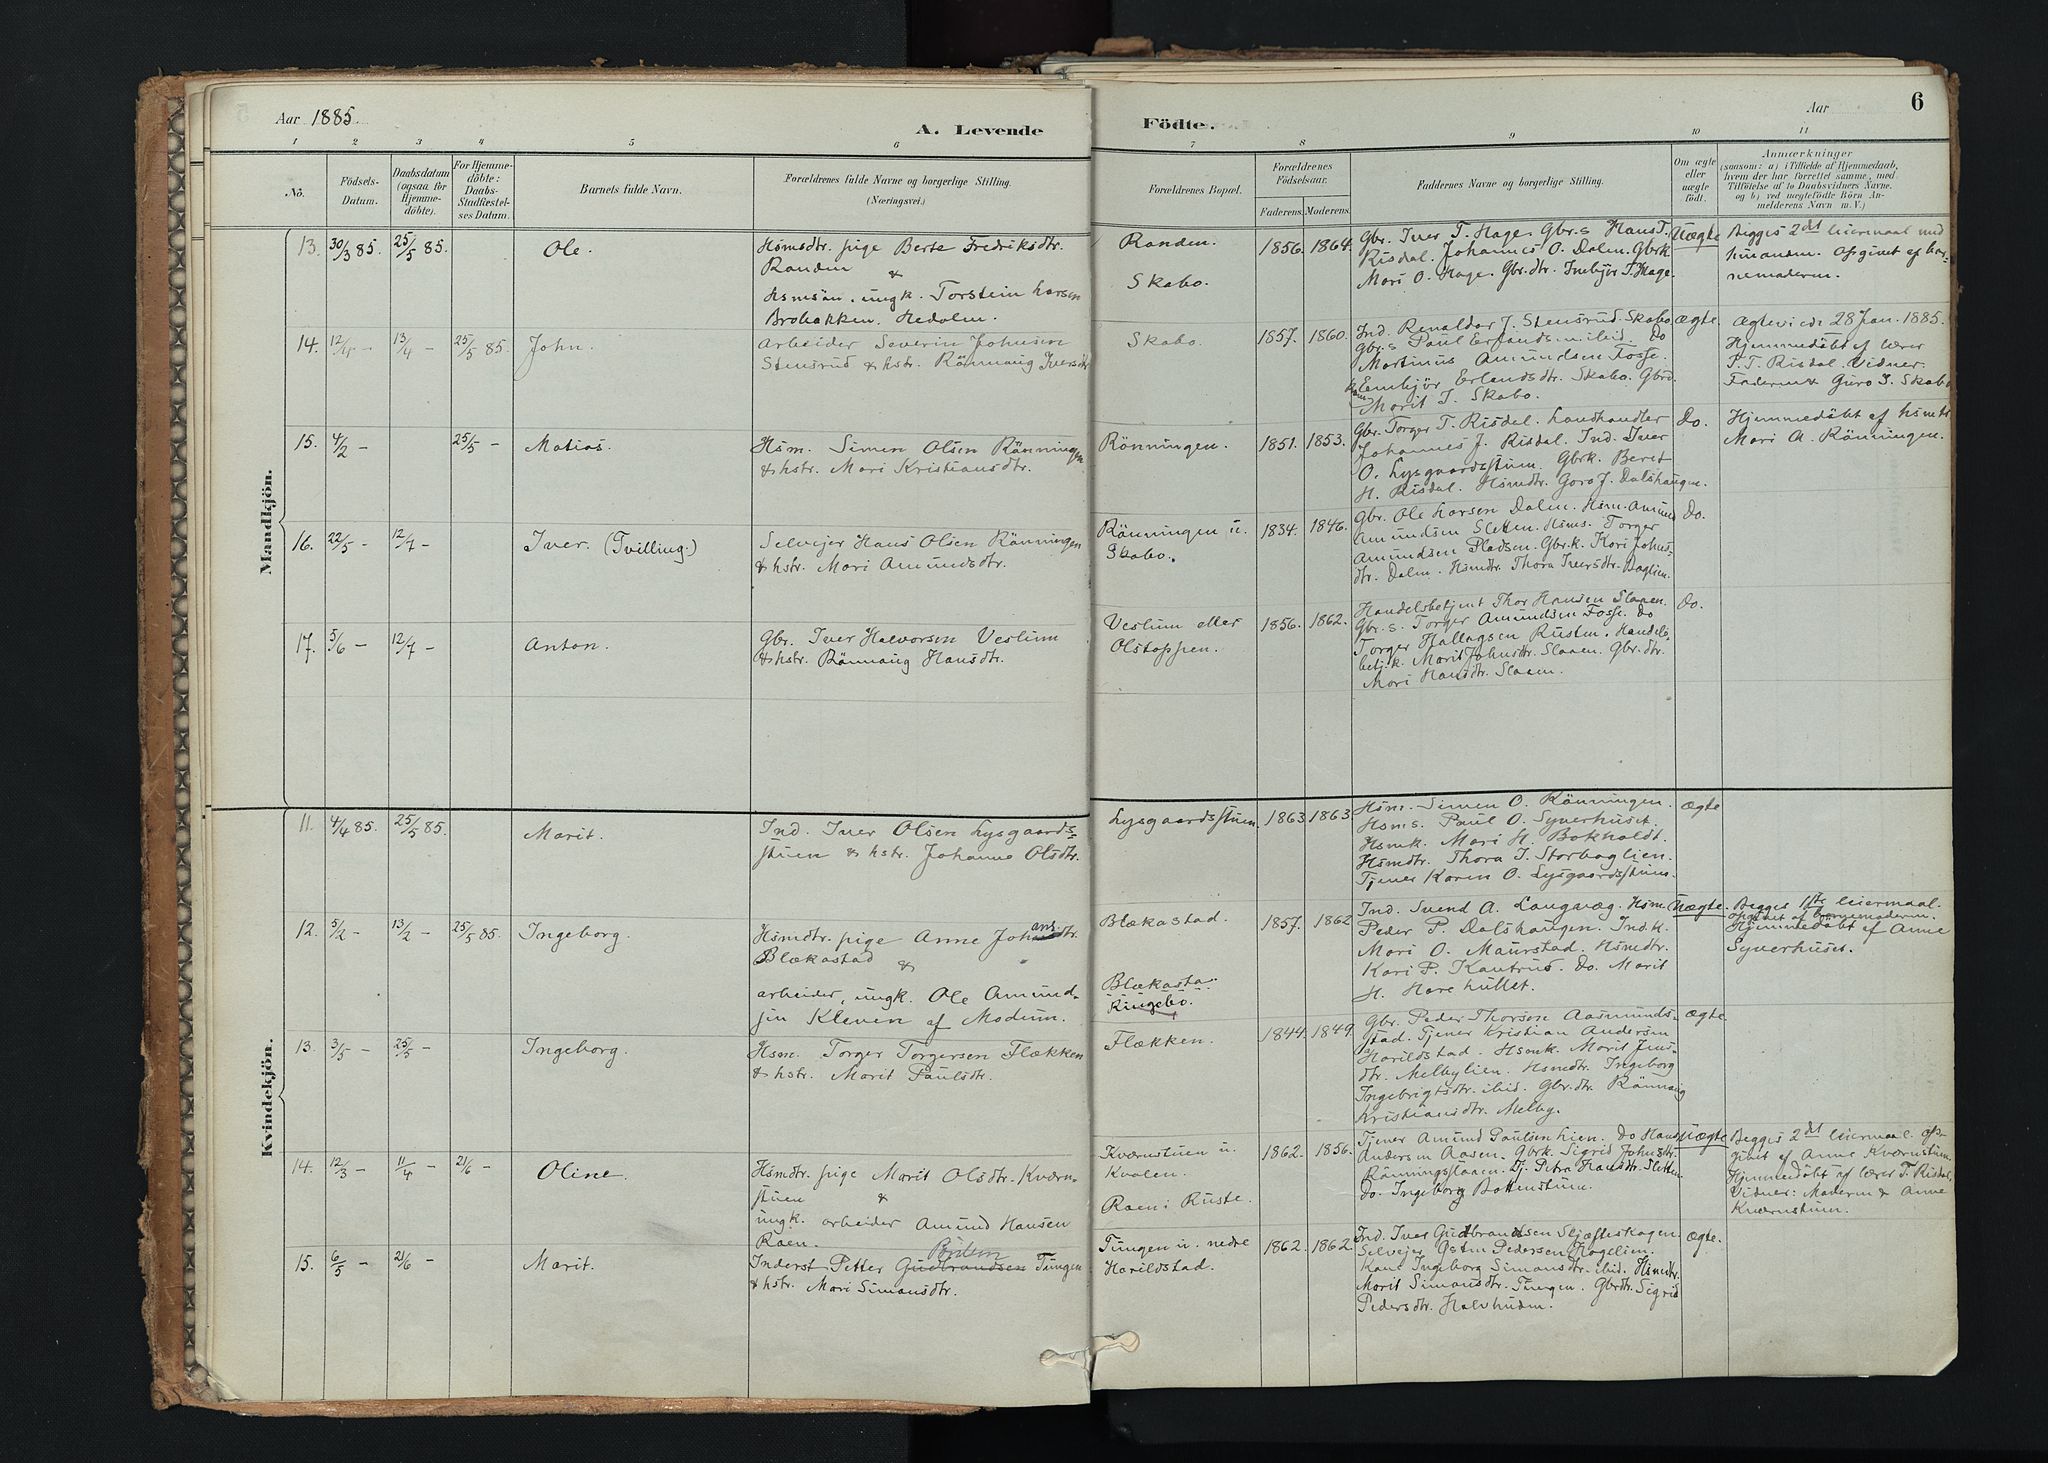 Aar 1885. A. Levende Födte. Aar 6
1 2 3 4 5 6 7 8 9 10 11
No. Födsels-Datum. Daabsdatum (ogsaa for Hjemmedöbte). For Hjemmedöbte: Daabs-Stadfæstelses Datum. Barnets fulde Navn. Forældrenes fulde Navne og borgerlige Stilling. (Næringsvei.) Forældrenes Bopæl. Forældrenes Födselsaar. Faderens. Moderens. Faddernes Navne og borgerlige Stilling. Om ægte eller uægte födt. Anmærkninger (saasom: a) i Tilfælde af Hjemmedaab, hvem der har forrettet samme, med Tilföielse af to Daabsvidners Navne, og b) ved uægtefödte Börn Anmelderens Navn m. V.)
Mandkjön.
13. 30/3 85. 25/5 85. Ole.
Hsmdtr. pige Berte Fredriksdtr.
Randen
&
Hsmsön. ungk. Torstein Larsen
Brobakken. Hedalen.
Randen.
Skabo.
1856. 1864.
Gbr. Iver T. Hage. Gbr.s Hans T.
Risdal. Johannes O. Dalen. Gbrk.
Mari O. Hage. Gbr.dtr. Imbjör T. Hage.
Uægte
Begges 2det leiermaal med
hinanden. Opgivet af bar-
nemoderen.
14. 12/4 - 13/4 - 25/5 85. John.
Arbeider Severin Johnsen
Stensrud & hstr. Rönnaug Iversdtr
Skabo.
1857. 1860.
Ind. Renaldar J. Stensrud. Skabo
Gbr.s Paul Erlandsen ibid. Do
Martinus Amundsen Fosse.
Embjör Erlandsdtr. Skabo. Gbrd.
Marit I. Skabo.
Ægte.
Ægteviede 28 Jan. 1885.
Hjemmedöbt af lærer
T. T. Risdal. Vidner.
Faderen & Guro I. Skabo
15. 4/2 - 25/5 - Matias.
Hsm. Simen Olsen Rönningen
& hstr. Mari Kristiansdtr.
Rönningen.
1851. 1853.
Gbr. Torger T. Risdal. Landhandler
Johannes J. Risdal. Ind. Iver
O. Lysgaardsstuen. Gbrk. Beret
H. Risdal. Hsmdtr. Goro J. Dalshaugen.
Do.
Hjemmedöbt af hsmk
Mari A. Rönningen.
16. 22/5 - 12/7 - Iver. (Tvilling.)
Selvejer Hans Olsen Rönningen
& hstr. Mari Amundsdtr.
Rönningen u.
Skabo.
1834. 1846.
Gbr. Ole Larsen Dalen. Hsm. Amund
Amundsen Sletten. Hsms. Torger
Amundsen Pladsen. Gbr.k. Kari Johns-
dtr. Dalen. Hsmdtr. Thora Iversdtr. Baglien.
Do.
17. 5/6 - 12/7 - Anton.
Gbr. Iver Halvorsen Veslum
& hstr. Rönnaug Hansdtr.
Veslum eller
Olstappen.
1856. 1862.
Handelsbetjent Thor Hansen Slaaen.
Gbr.s. Torger Amundsen Fosse. Do
Torger Hallagsen Rusten. Handels-
betj.k. Marit Johnsdtr. Slaaen. Gbr.dtr.
Mari Hansdtr. Slaaen.
Do.
Kvindekjön.
11. 4/4 85. 25/5 85. Marit.
Ind. Iver Olsen Lysgaards-
stuen & hstr. Johanne Olsdtr.
Lysgaardsstuen.
1863 1863
Hsm. Simen O. Rönningen.
Hsms. Paul O. Syverhuset.
Hsmk. Mari H. Bokholdt.
Hsmdtr. Thora I. Storbaglien.
Tjener Karen O. Lysgaardsstuen.
Ægte
12. 5/2 - 13/2 - 25/5 85. Ingeborg.
Hsmdtr. pige Anne Johansdtr.
Blækastad
&
arbeider, ungk. Ole Amund-
sen Kleven af Modum.
Blækastad.
Blækasta
Ringebo.
1857. 1862
Ind. Svend A. Langvæg. Hsm.
Peder P. Dalshaugen. Ind.k.
Mari O. Maurstad. Hsmdtr.
Kari P. Kantrus. Do. Marit
H. Harehullet.
Uægte.
Begges 1ste leiermaal.
opgivet af barnemoderen.
Hjemmedöbt af Anne
Syverhuset.
13. 3/5 - 25/5 - Ingeborg.
Hsm. Torger Torgersen Flækken
& hstr. Marit Paulsdtr.
Flækken.
1844. 1849.
Gbr. Peder Thorsen Aasmunds-
stad. Tjener Kristian Andersen
Harildstad. Hsmk. Marit Jens-
dtr. Melbylien. Hsmdtr. Ingeborg
Ingebrigtsdtr. ibid. Gbr.dtr. Rönnaug
Kristiansdtr. Melby.
Ægte
14. 12/3 - 11/4 - 21/6 - Oline.
Hsmdtr. pige Marit Olsdtr. Kværn-
stuen
&
ungk. arbeider Amund Hansen
Raen.
Kværnstuen u.
Kvolen.
Raen i Ruste.
1862. 1856.
Tjener Amund Paulsen Lien. Do Hans
Andersen Aasen. Gbrk. Sigrid Johnsdtr.
Rönningsslaaen. Tj. Petra Hansdtr. Sletten.
Do. Ingeborg Bottenstuen.
Uægte
Begges 2det leiermaal. Op-
givet af Anne Kværnstuen
Hjemmedöbt af lærer T. Risdal,
Vidner: Moderen & Anne
Kværnstuen.
15. 6/5 - 21/6 - Marit.
Inderst Petter Gudbrandsen Tungen
& hstr. Mari Simonsdtr.
Tungen u. nedre
Harildstad.
1862. 1862.
Ind. Iver Gudbrandsen Skjæftskagen
Selvejer Østen Pedersen Hagelien.
Kone Ingeborg Simonsdtr. ibid. Hsmdtr.
Marit Simonsdtr. Tungen. Gbrdtr. Sigrid
Pedersdtr. Halvhuden.
Ægte.